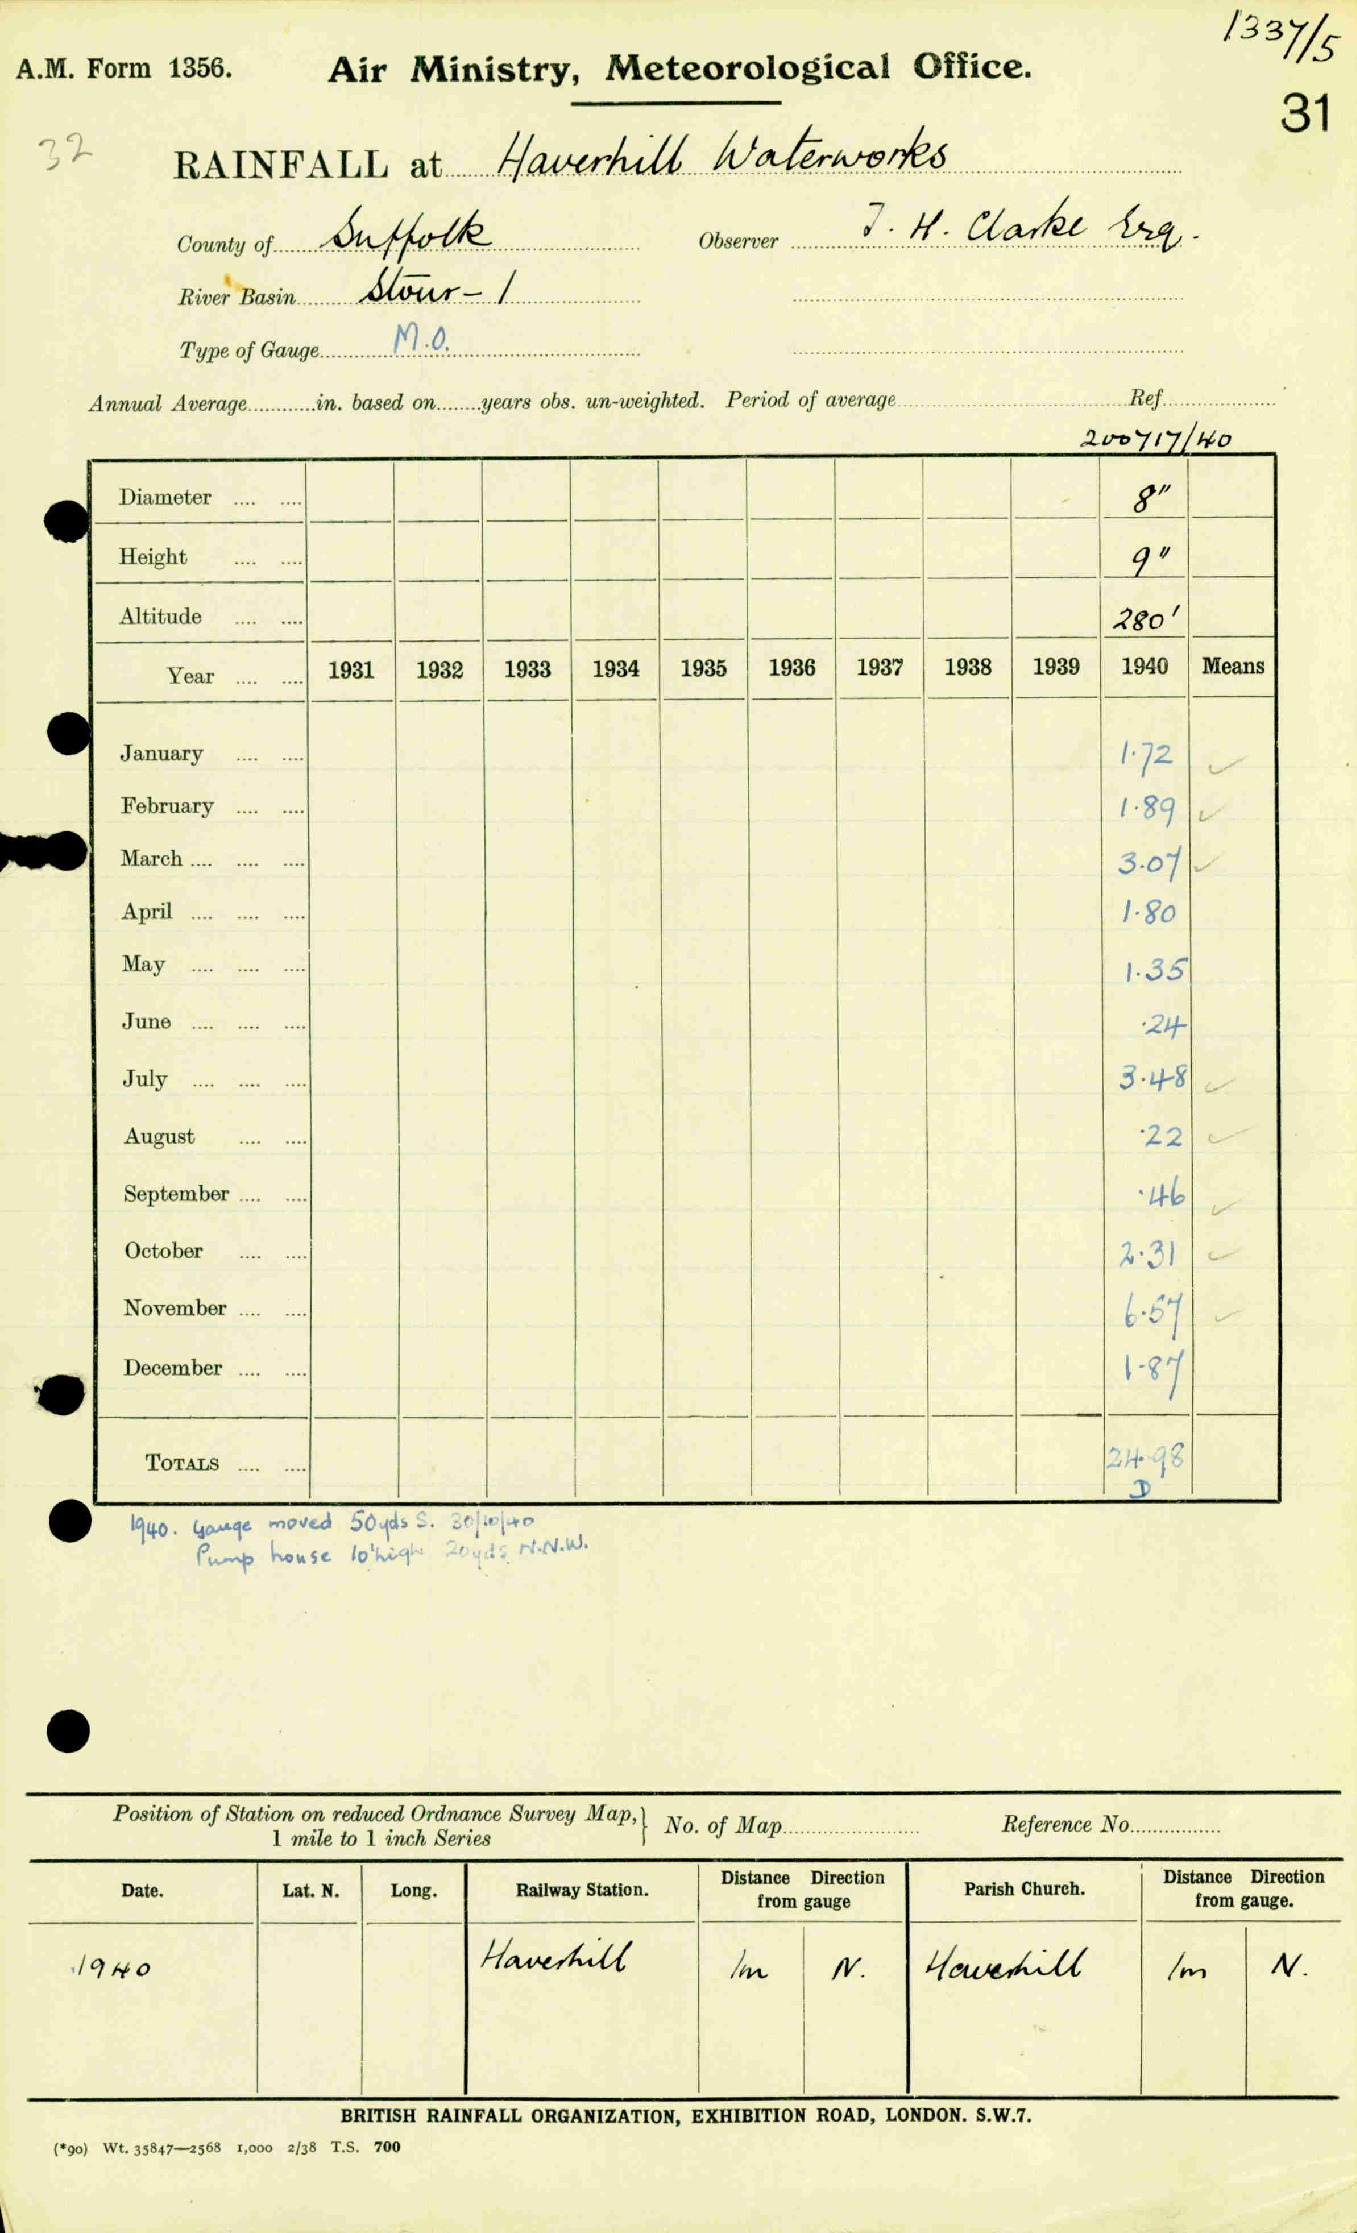 1337/5
A.M. Form 1356. Air Ministry, Meteorological Office.
31
32
RAINFALL at Haverhill Waterworks
County of Suffolk Observer T. H. Clarke Esq.
River Basin Stour – 1
Type of Gauge M.O.
Annual Average in. based on years obs. un-weighted. Period of average Ref.
200717/40
Diameter 8"
Height 9"
Altitude 280'
Year 1931 1932 1933 1934 1935 1936 1937 1938 1939 1940 Means
January 1.72 ✓
February 1.89 ✓
March 3.07 ✓
April 1.80
May 1.35
June .24
July 3.48 ✓
August .22 ✓
September .46 ✓
October 2.31 ✓
November 6.57 ✓
December 1.87
TOTALS 24.98
D
1940. Gauge moved 50yds S. 30/10/40
Pump house 10'high 20yds N.N.W.
Position of Station on reduced Ordnance Survey Map, } No. of Map Reference No.
1 mile to 1 inch Series
Date. Lat. N. Long. Railway Station. Distance Direction from gauge Parish Church. Distance Direction from gauge.
1940 Haverhill 1m N. Haverhill 1m N.
BRITISH RAINFALL ORGANIZATION, EXHIBITION ROAD, LONDON. S.W.7.
(*90) Wt. 35847—2568 1,000 2/38 T.S. 700